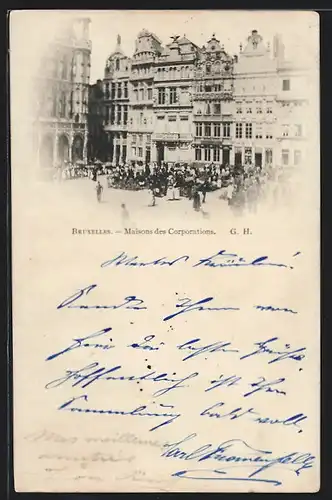 BRUXELLES. — Maisons des Corporations. G. H.
Wertes Fräulein!
Sende Ihnen von
hier die besten Grüße
Hoffentlich ist Ihre
Sammlung bald voll.
Mes meilleures
Karl